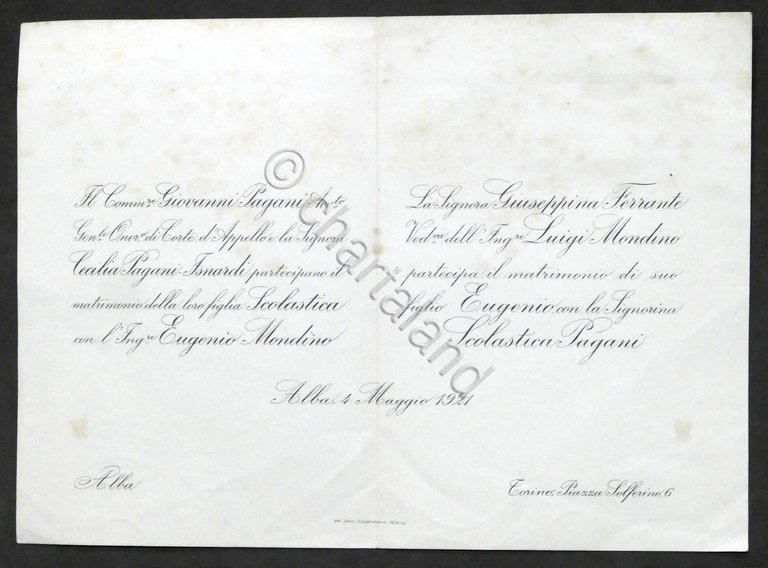 Il Comm.re Giovanni Pagani Avv.to
Gen.le Onor.o di Corte d'Appello e la Signora
Cecilia Pagani-Isnardi partecipano il
matrimonio della loro figlia Scolastica
con l'Ing.re Eugenio Mondino
La Signora Giuseppina Ferrante
Ved.va dell'Ing.re Luigi Mondino
partecipa il matrimonio di suo
figlio Eugenio con la Signorina
Scolastica Pagani
Alba, 4 Maggio 1921
Alba
Torino, Piazza Solferino, 6
© Chartaland